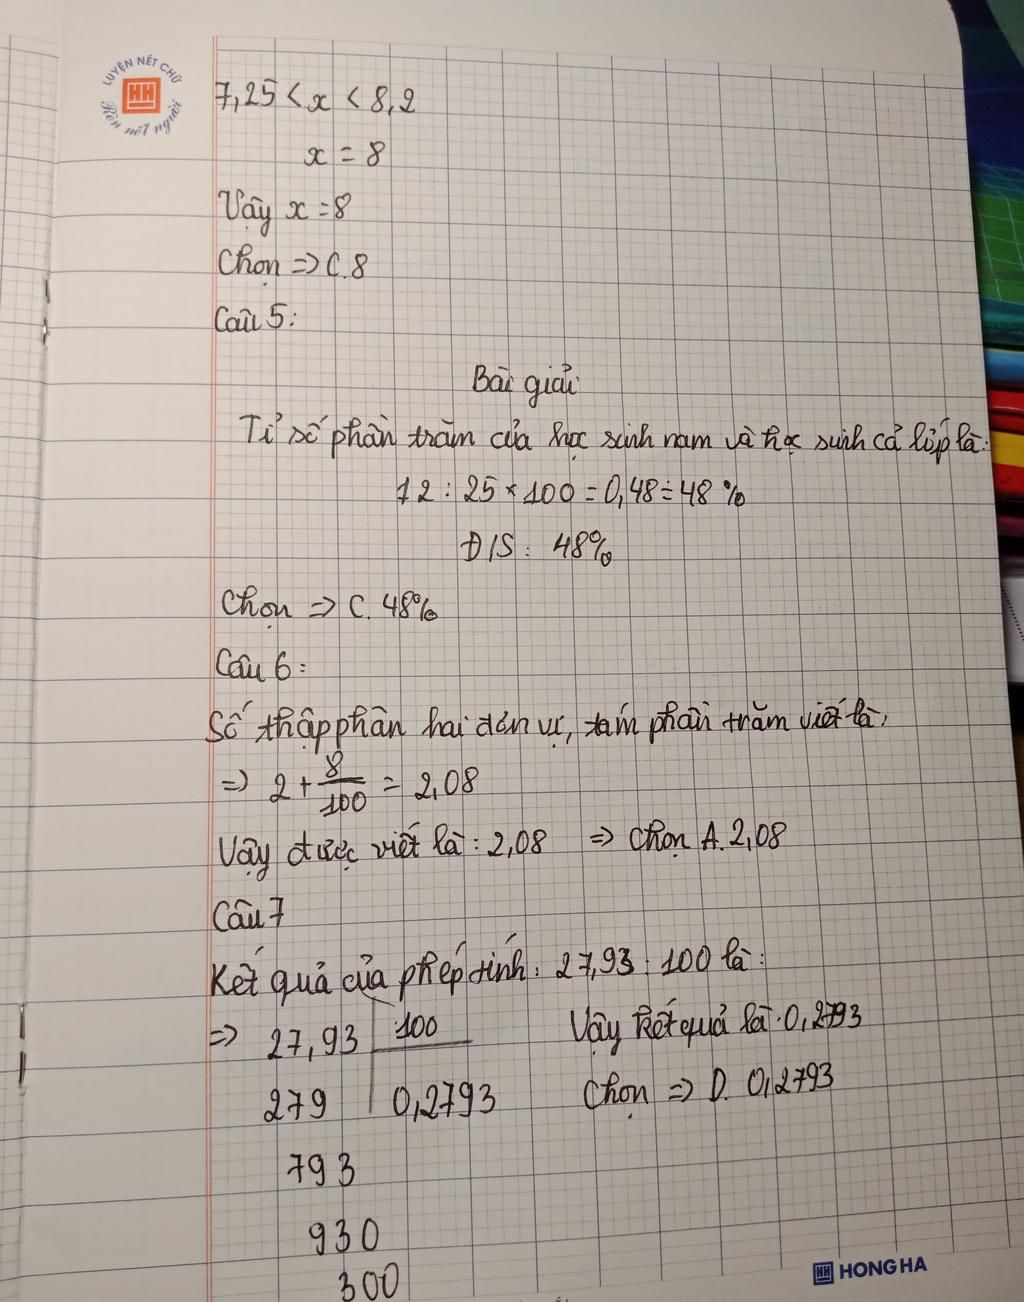 LUYỆN NÉT CHỮ
HH
Rèn nết người
7,25 < x < 8,2
x = 8
Vậy x = 8
Chọn => C. 8
Câu 5:
Bài giải
Tỉ số phần trăm của học sinh nam và học sinh cả lớp là:
12 : 25 × 100 = 0,48 = 48 %
Đ/S : 48%
Chọn => C. 48%
Câu 6 :
Số thập phân hai đơn vị, tám phần trăm viết là:
=> 2 + 8/100 = 2,08
Vậy được viết là : 2,08 => Chọn A. 2,08
Câu 7
Kết quả của phép tính : 27,93 : 100 là :
=> 27,93 100 Vậy kết quả là : 0,2793
279 0,2793 Chọn => D. 0,2793
793
930
300
HH HONG HA